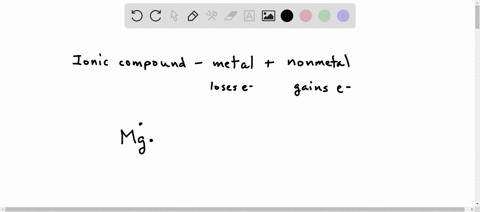 Ionic compound - metal + nonmetal
loses e- gains e-
Mg